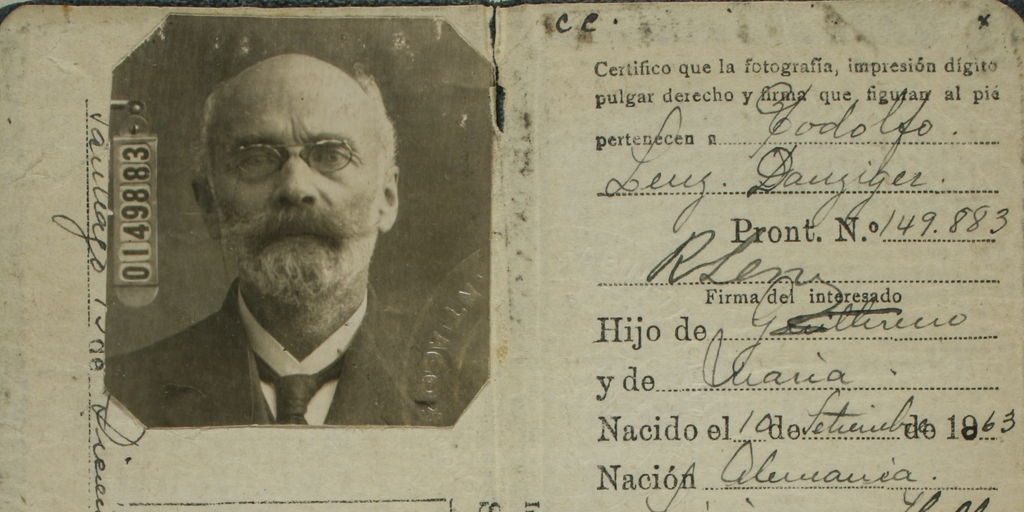 0149883
Santiago 1º de Dicie
C C.
x
Certifico que la fotografía, impresión dígito
pulgar derecho y firma que figuran al pié
pertenecen a Rodolfo.
Lenz. Danziger.
Pront. N.º 149.883
R Lenz
Firma del interesado
Hijo de Guillermo
y de Maria.
Nacido el 10 de Setiembre de 1863
Nación Alemania.